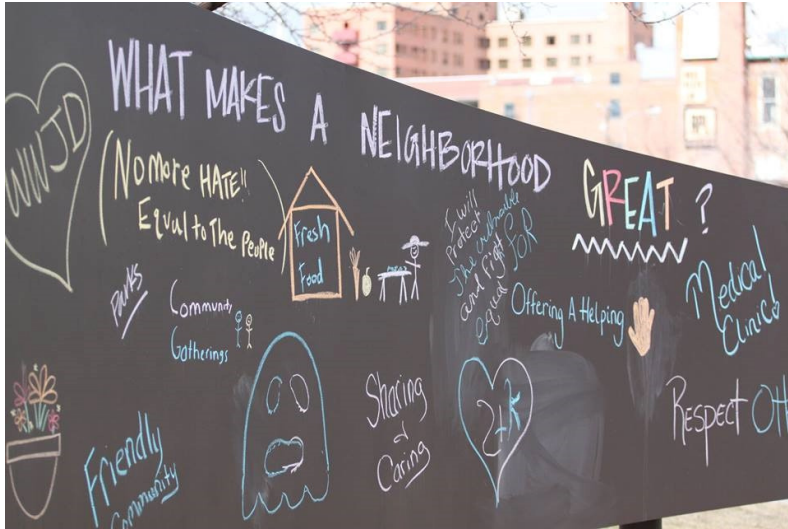 WHAT MAKES A NEIGHBORHOOD GREAT?
WWJD
(No more HATE!!
Equal to The People)
Fresh
Food
I will
Protect
The vulnerable
and Fight FOR
equal
Parks
Community
Gatherings
Offering A Helping
Medical
Clinic!
Friendly
Community
Sharing
&
Caring
Respect OTH